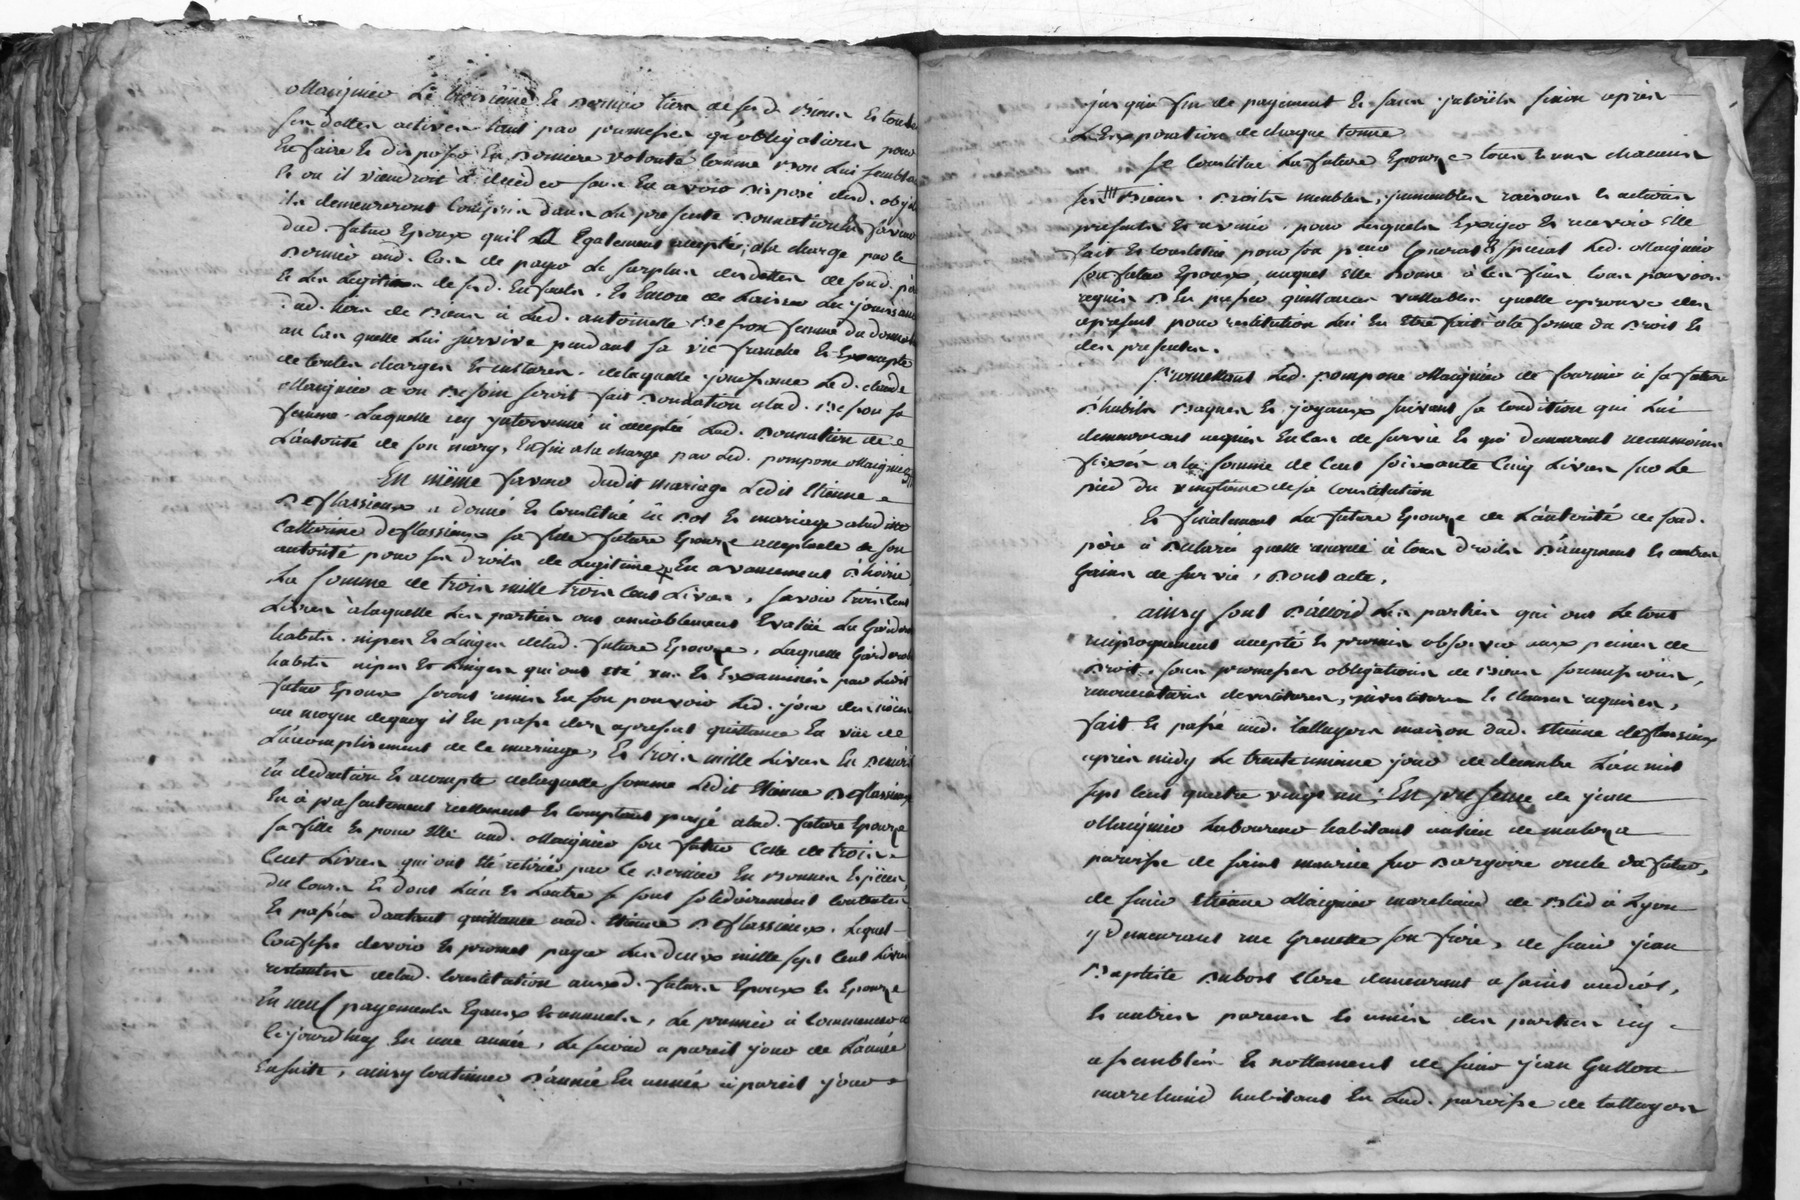 Maignier Le troisieme Et Dernier tiers de sesd. Biens Et toutes
ses dettes actives tant par promesses qu'obligations pour
En faire Et disposer En Derniere volonté Comme Bon Lui semblera
Et ou il viendroit à deceder sans En avoir Disposé desd. objets
ils demeureront Compris dans La presente Donnation En faveur
dud. futur Epoux qu'il a Egalement accepté, ala charge par le
Dernier aud. Cas de payer Le surplus des dettes de sond. père
Et Les Legitimes de sesd. Enfants. Et Encore de Laisser La jouissance
dud. tiers de Biens à Lad. antoinette Besson femme du donnateur
au Cas quelle Lui survive pendant sa vie franche Et Exempte
de toutes charges Et institures. delaquelle jouissance Led. claude
Maignier a en Besoin seroit fait Donnation alad. Besson sa
femme. Laquelle icy intervenue à accepté Lad. Donnation de
L'autorité de son mary, Enfin ala charge par Led. pompone Maignier
En même faveur dudit mariage Ledit Etienne
Deflassieux a donné Et Constitué En Dot Et mariage aladite
Catherine deflassieux sa fille future Epouze acceptante de son
autorité pour ses droits de Legitime En avancement d'hoirie
La somme de trois mille trois Cent Livres, savoir trois Cent
Livres à laquelle Les parties ont amiablement Evalüé La Garderobe
habits. nipes Et Linges delad. future Epouze, Laquelle Garderobe
habits nipes Et Linges qui ont été vus Et Examinés par Ledit
futur Epoux seront remis En son pouvoir Led. jour des nôces
au moyen dequoy il En passe des apresent quittance En vüe de
L'accomplissement de ce mariage, Et trois mille Livres En deniers
En deduction Et acompte delaquelle somme Ledit Etienne Deflassieux
En à presentement reellement Et Comptant payé alad. future Epouze
sa fille Et pour Elle aud. Maignier son futur Celle de trois
Cent Livres qui ont été retirés par le dernier En Bonnes Espèces
du Cours Et dont L'un Et L'autre se sont solidairement Contentés
Et passés d'autant quittance aud. Etienne Deflassieux. Lequel
Confesse devoir Et promet payer Les deux mille sept Cent Livres
restantes delad. Constitution auxd. futurs Epoux Et Epouze
En neuf payements Egaux Et annuels, Le premier à Commencer de
Cejourd'huy En une année, Le second a pareil jour de L'année
Ensuite, ainsy Continuer D'année En année à pareil jour
jusqu'a fin de payement Et sans interêts sinon après
L'Expiration de chaque terme
Se Constitue La future Epouze tous Et uns chacuns
ses Biens. Droits meubles, immeubles raisons Et actions
presents Et avenir, pour Lesquels Exiger Et recevoir Elle
fait Et Constitue pour son pcur General Et special Led. Maignier
son futur Epoux, auquel Elle Donne à ces fins tous pouvoirs
requis D'En passer quittances vallables quelle aprouve des
apresent pour restitution Lui En Etre fait ala forme du Droit Et
des presentes.
Promettant Led. pompone Maignier de fournir à sa future
d'habits Bagues Et joyaux suivant sa Condition qui Lui
demeureront acquis En Cas de survie Et qui demeurent neanmoins
fixés ala somme de Cent soixante Cinq Livres sur Le
pied du vingtieme desa Constitution
Et finalement La future Epouze de L'autorité de sond.
père à Déclaré quelle renonce à tous droits D'augment Et autres
Gains de survie, Dont acte,
ainsy sont D'accord Les parties qui ont Le tout
reciproquement accepté Et promis observer aux peines de
Droit, sous promesses obligations de Biens soumissions,
renonciations devestitures, investitures Et Clauses requises,
fait Et passé aud. talluyers maison dud. Etienne deflassieux
après midy Le trente unieme jour de decembre L'an mil
sept Cent quatre vingt un; En presence de jean
Maignier Laboureur habitant
paroisse de saint maurice sur Dargoire oncle du futur,
de sieur Etienne Maignier marchand de Bled à Lyon
y demeurant rue Grenette son frere, de sieur jean
Baptiste Dubost Clerc demeurant a saint andéol,
Et autres parents Et amis des parties icy
assemblés Et nottament de sieur jean Guillon
marchand habitant En Lad. paroisse de tallluyers